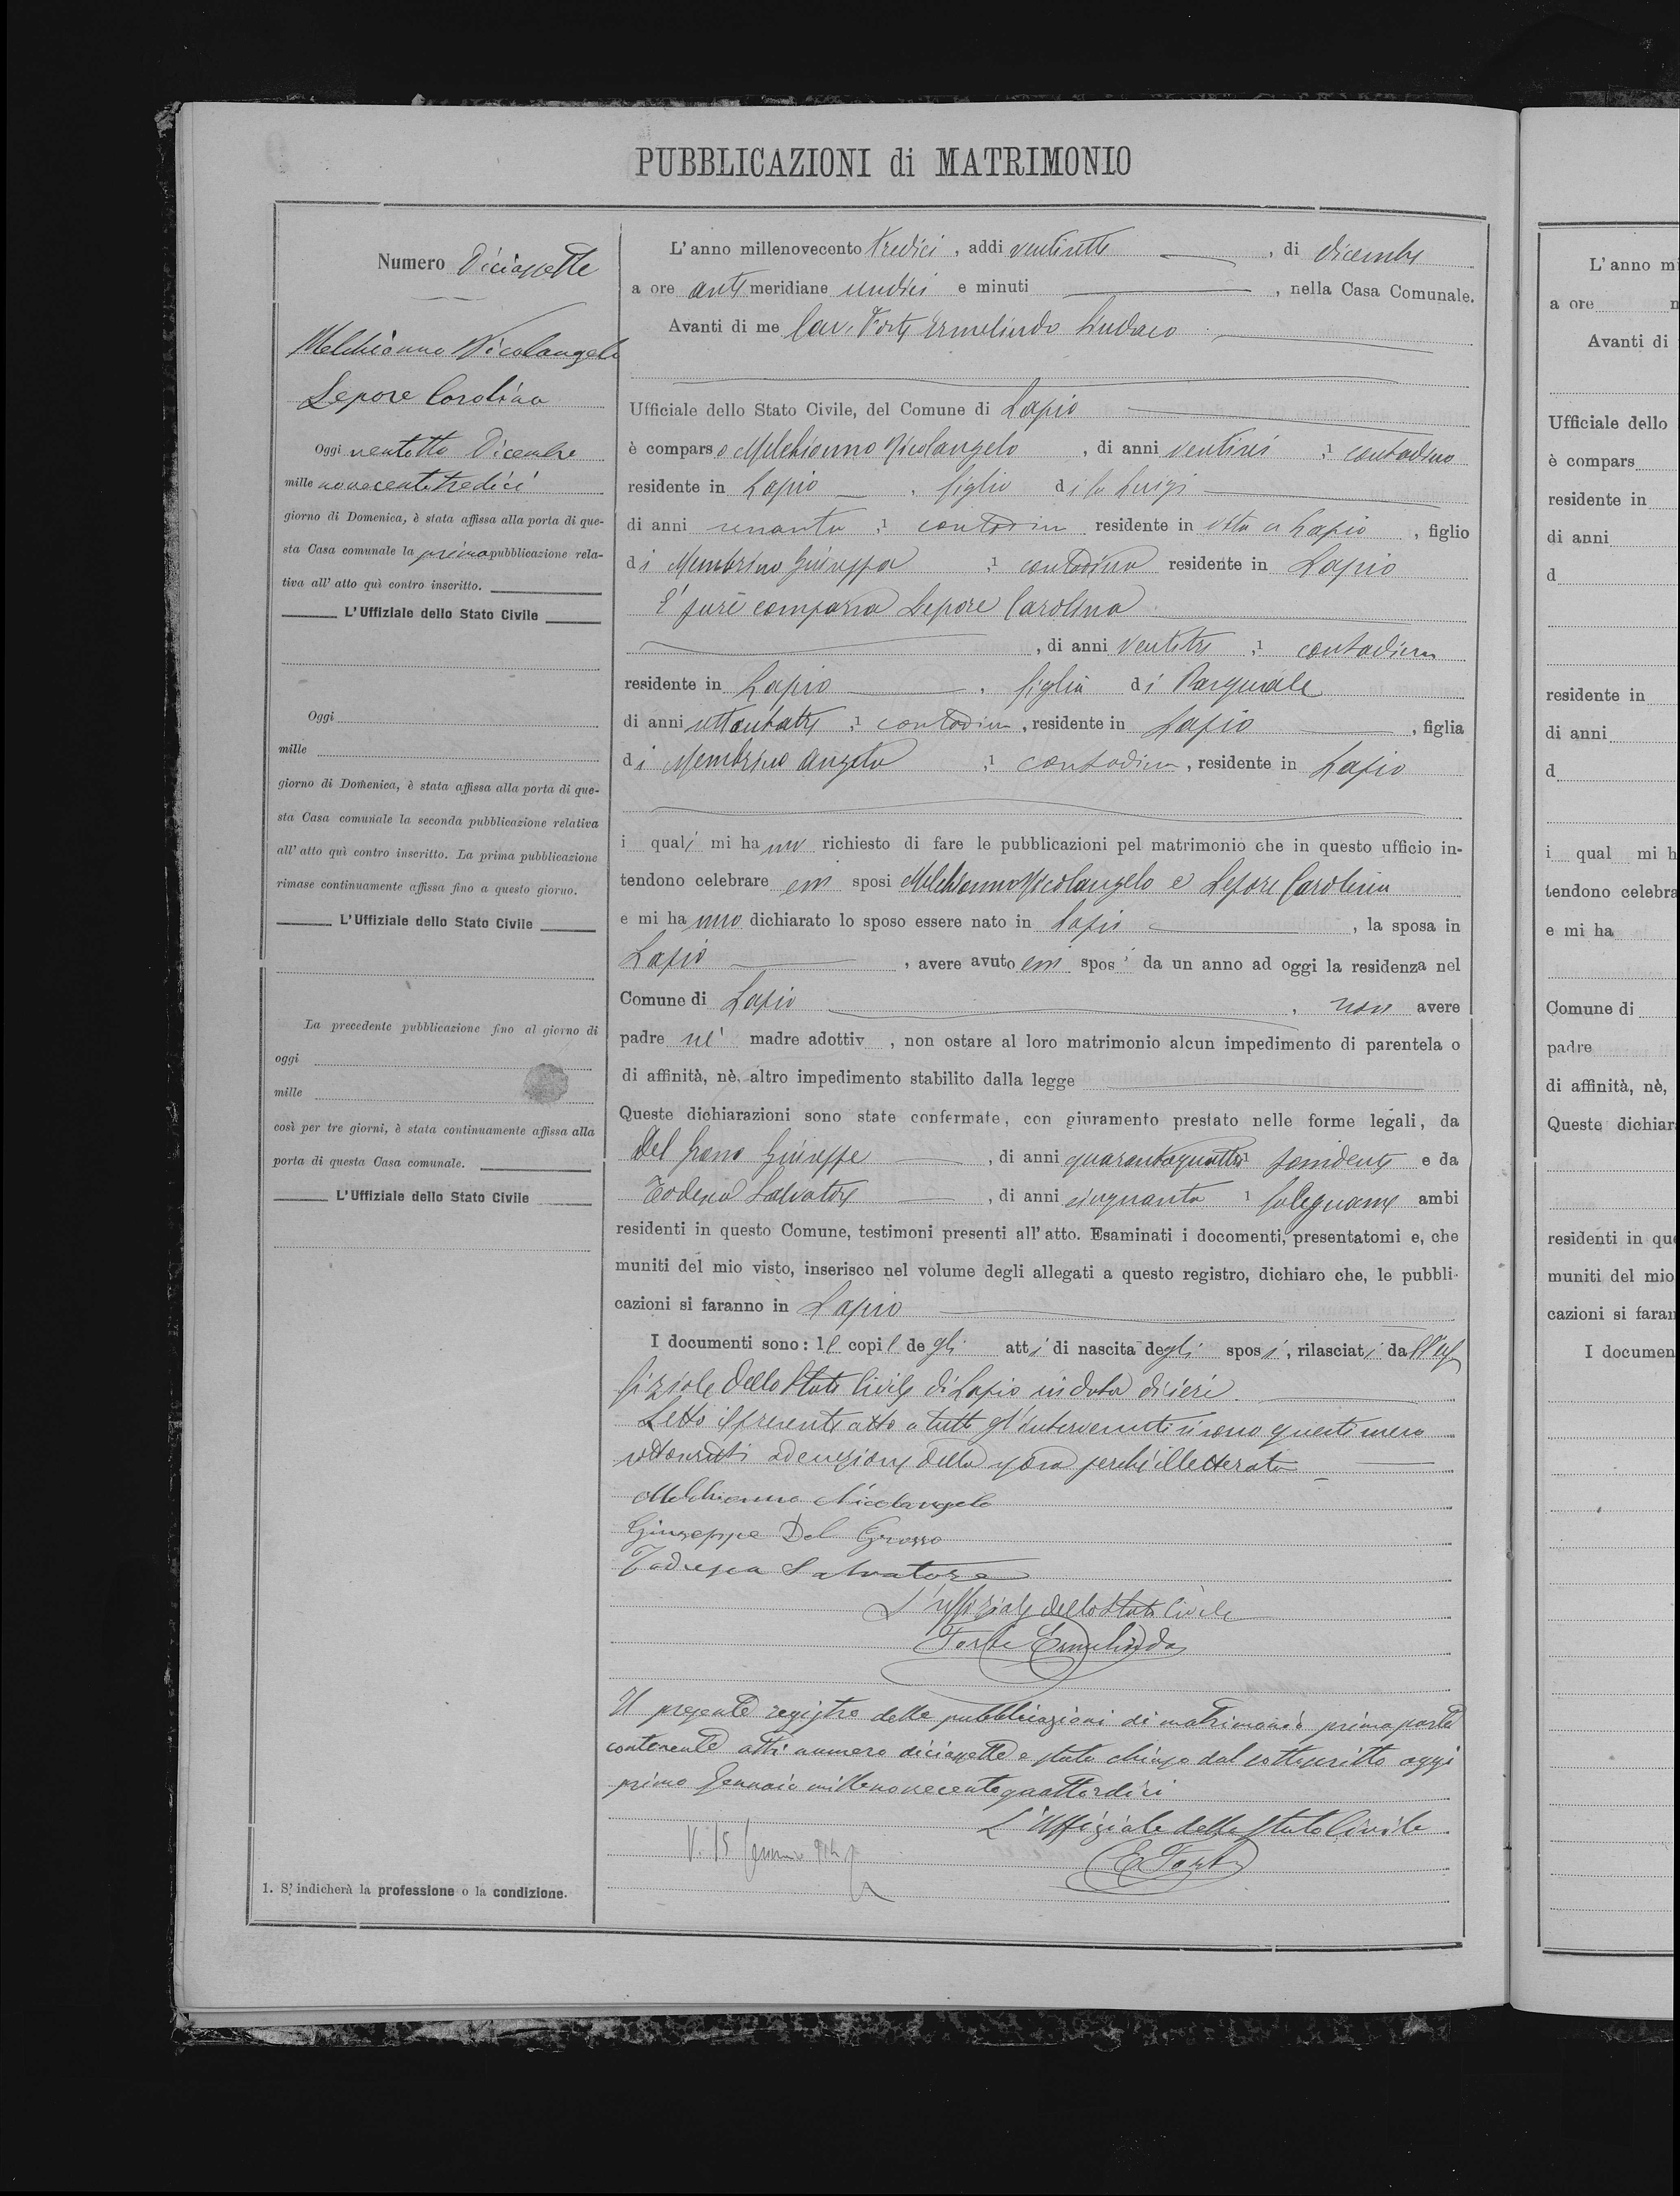 PUBBLICAZIONI di MATRIMONIO
Numero Diciassette
Melchionno Nicolangelo
Lepore Carolina
Oggi ventotto Dicembre
mille novecentotredici
giorno di Domenica, è stata affissa alla porta di que-
sta Casa comunale la prima pubblicazione rela-
tiva all' atto quì contro inscritto.
L'Uffiziale dello Stato Civile
Oggi
mille
giorno di Domenica, è stata affissa alla porta di que-
sta Casa comunale la seconda pubblicazione relativa
all' atto quì contro inscritto. La prima pubblicazione
rimase continuamente affissa fino a questo giorno.
L'Uffiziale dello Stato Civile
La precedente pubblicazione fino al giorno di
oggi
mille
così per tre giorni, è stata continuamente affissa alla
porta di questa Casa comunale.
L'Uffiziale dello Stato Civile
1. S' indicherà la professione o la condizione.
L' anno millenovecento tredici, addi ventisette, di dicembre
a ore antimeridiane undici e minuti , nella Casa Comunale.
Avanti di me Cav. Forte Ermelindo Sindaco
Ufficiale dello Stato Civile, del Comune di Lapio
è comparso Melchionno Nicolangelo, di anni ventisei, 1 contadino
residente in Lapio, figlio di fu Luigi
di anni 1 contadin residente in vita a Lapio, figlio
di Membrino Giuseppa, 1 contadina residente in Lapio
E' pure comparsa Lepore Carolina
, di anni ventitre, 1 contadina
residente in Lapio, figlia di Pasquale
di anni 1 contadino, residente in Lapio, figlia
di Membrino Angela, 1 contadina, residente in Lapio
i quali mi hanno richiesto di fare le pubblicazioni pel matrimonio che in questo ufficio in-
tendono celebrare essi sposi Melchionno Nicolangelo e Lepore Carolina
e mi hanno dichiarato lo sposo essere nato in Lapio, la sposa in
Lapio, avere avuto essi sposi da un anno ad oggi la residenza nel
Comune di Lapio, non avere
padre nè madre adottiv , non ostare al loro matrimonio alcun impedimento di parentela o
di affinità, nè altro impedimento stabilito dalla legge
Queste dichiarazioni sono state confermate, con giuramento prestato nelle forme legali, da
Del Grosso Giuseppe, di anni quarantaquattro 1 possidente e da
Todesca Salvatore, di anni cinquanta 1 falegname ambi
residenti in questo Comune, testimoni presenti all' atto. Esaminati i documenti, presentatomi e, che
muniti del mio visto, inserisco nel volume degli allegati a questo registro, dichiaro che, le pubbli-
cazioni si faranno in Lapio
I documenti sono: le copie degli atti di nascita degli sposi, rilasciati dall'Uf
fiziale dello Stato Civile di Lapio in data di ieri.
Letto il presente atto a tutti gl'intervenuti si sono questi meco
sottoscritti ad eccezione della sposa perchè illetterata
Melchionno Nicolangelo
Giuseppe Del Grosso
Todesca Salvatore
L'uffiziale dello Stato Civile
Forte Ermelindo
Il presente registro delle pubblicazioni di matrimonio prima parte
contenente atti numero diciassette è stato chiuso dal sottoscritto oggi
primo Gennaio millenovecentoquattordici
L'Uffiziale dello Stato Civile
E Forte
V. 15 gennaio 914
L' anno mi
a ore
Avanti di
Ufficiale dello
è compars
residente in
di anni
d
residente in
di anni
d
i qual mi h
tendono celebra
e mi ha
Comune di
padre
di affinità, nè,
Queste dichiar
residenti in que
muniti del mio
cazioni si faran
I documen